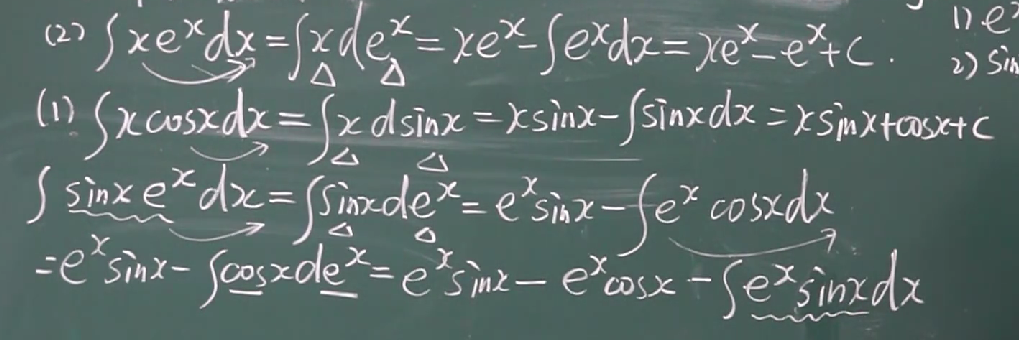 (2) ∫xeˣdx = ∫x deˣ = xeˣ - ∫eˣdx = xeˣ - eˣ + C.
1) eˣ
2) sin
(1) ∫x cosx dx = ∫x dsinx = xsinx - ∫sinx dx = xsinx + cosx + C
∫sinx eˣ dx = ∫sinx deˣ = eˣsinx - ∫eˣ cosx dx
= eˣsinx - ∫cosx deˣ = eˣsinx - eˣcosx - ∫eˣsinx dx